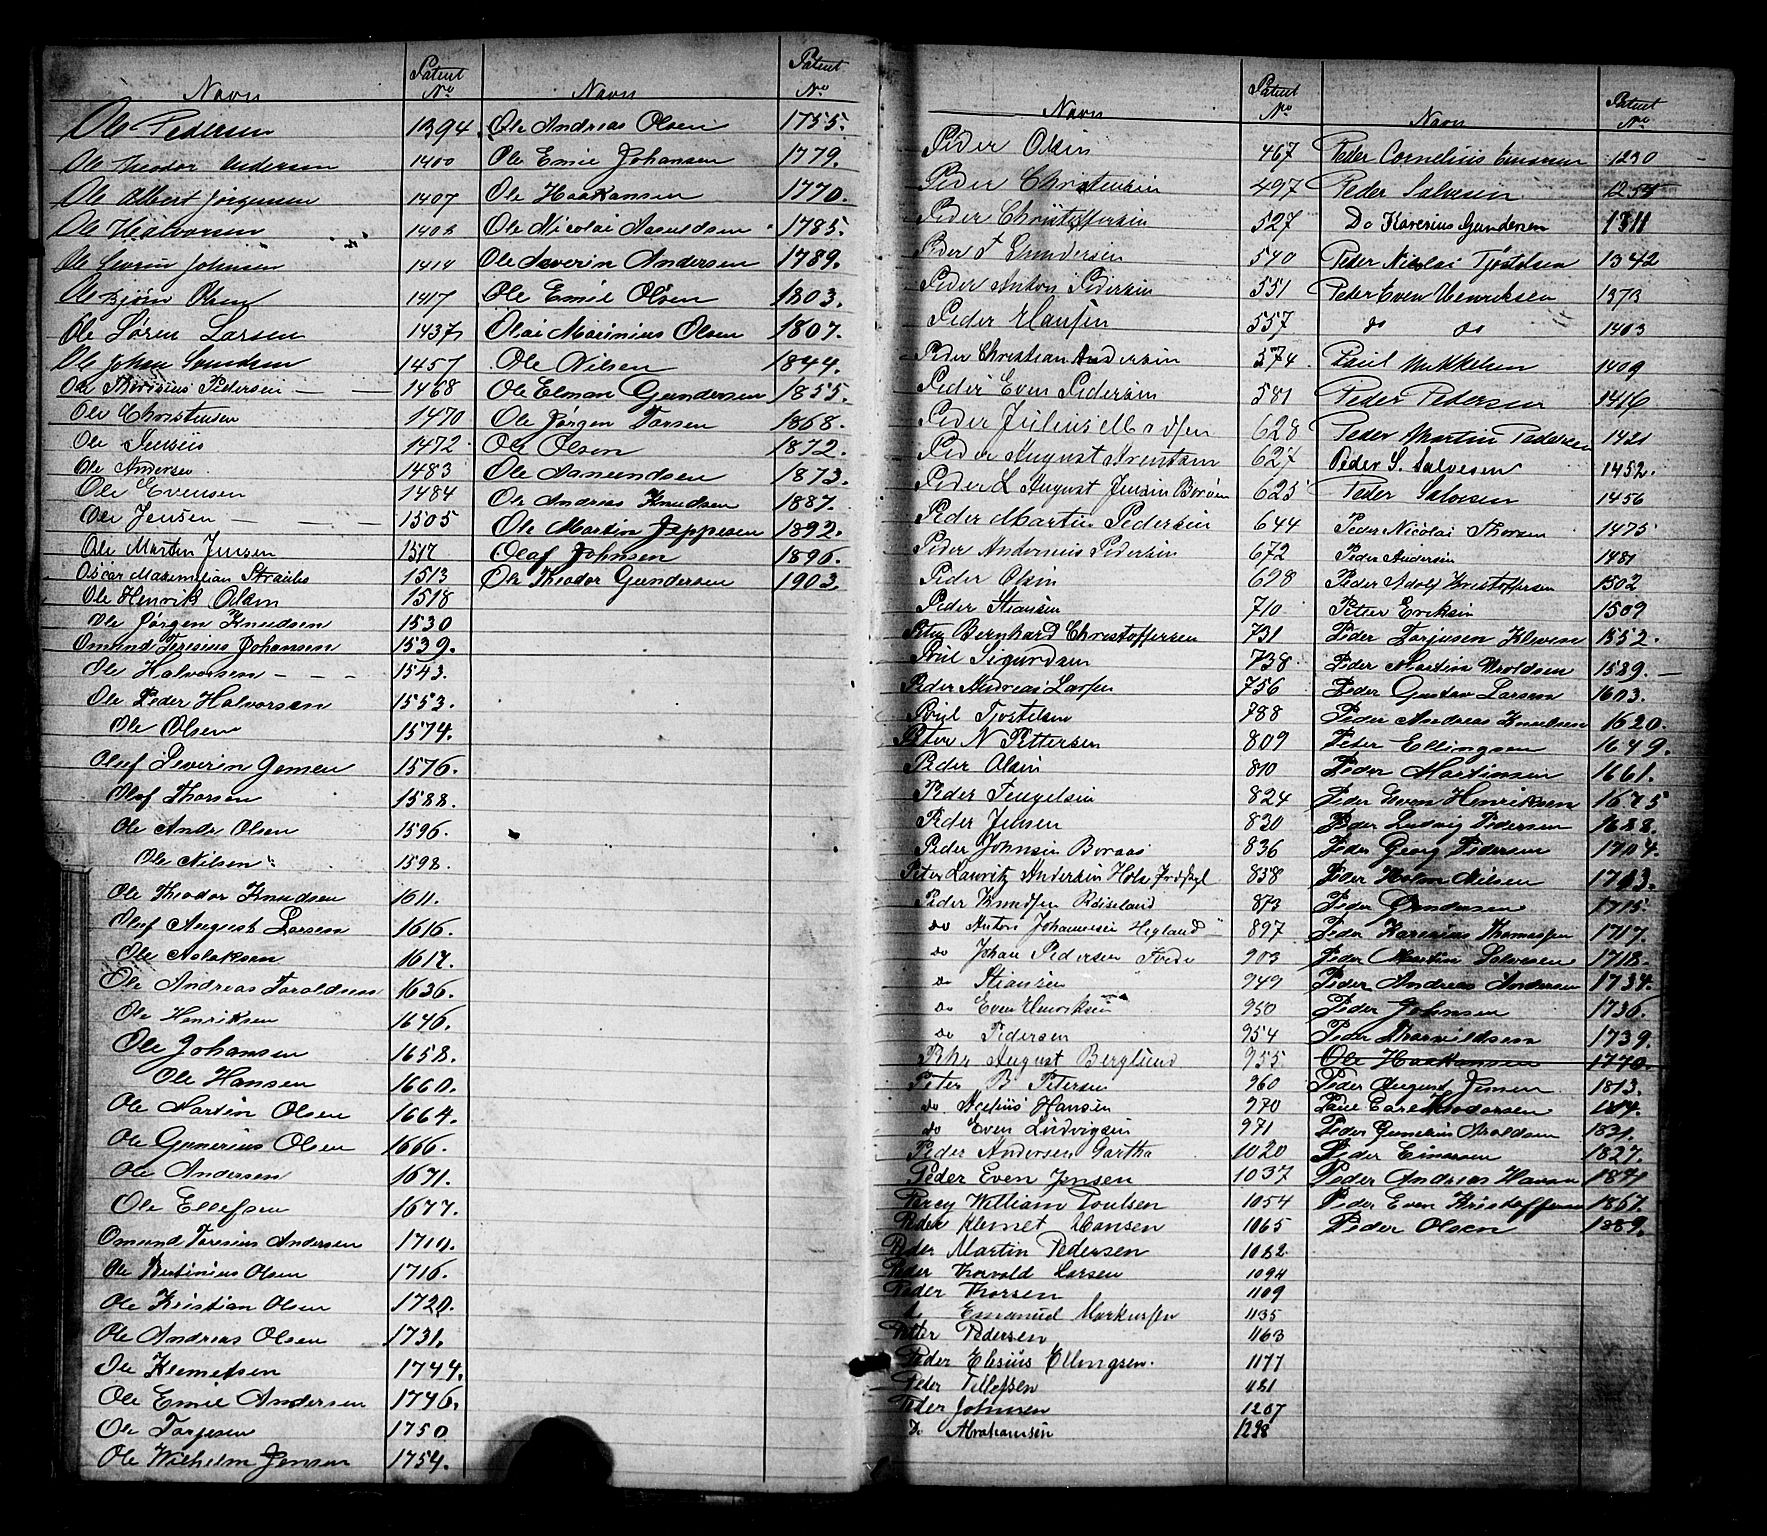 Navn Patent No
Ole Pedersen 1394.
Ole Theodor Andersen 1400
Ole Albert Jørgensen 1407
Ole Halvorsen 1408
Ole Severin Johnsen 1414
Ole Bjørn Olsen 1417
Ole Søren Larsen 1437
Ole Johan Knudsen 1457
Ole Pedersen 1468
Ole Christensen 1470
Ole 1472.
Ole Andersen 1483
Ole Evensen 1484
Ole Jensen 1505
Ole Martin Jensen 1517
Oscar Maximilian 1513
Ole Henrik Olsen 1518
Ole Jørgen Knudsen 1530
Omund Teresius Johansen 1539.
Ole Halvorsen 1543.
Ole Peder Halvorsen 1553.
Ole Olsen 1574.
Oluf Severin Jensen 1576.
Olaf Thorsen 1588.
Ole Andr Olsen 1596.
Ole Nilsen 1598.
Ole Theodor Knudsen 1611.
Oluf August Larsen 1616.
Ole Aslaksen 1617.
Ole Andreas Taraldsen 1636.
Ole Henriksen 1646.
Ole Johansen 1658.
Ole Hansen 1660.
Ole Martin Olsen 1664.
Ole Gunerius Olsen 1666.
Ole Andersen 1671.
Ole Ellefsen 1677.
Omund Teresius Andersen 1710.
Ole Bertinius Olsen 1716.
Ole Kristian Olsen 1720.
Ole Andreas Olsen 1731.
Ole Klemetsen 1744.
Ole Emil Andersen 1746.
Ole Torjesen 1750
Ole Wilhelm Jensen 1754.
Navn Patent No
Ole Andreas Olsen 1755.
Ole Emil Johansen 1779.
Ole Haakansen 1770.
Ole Nicolai Asruldsen 1785.
Ole Severin Andersen 1789.
Ole Emil Olsen 1803.
Olai Marinius Olsen 1807.
Ole Nilsen 1844.
Ole Elman Gundersen 1855.
Ole Jørgen Tarsen 1868.
Ole Olsen 1872.
Ole Aanundsen 1873.
Ole Andreas Knudsen 1887.
Ole Martin Jeppesen 1892.
Olaf Johnsen 1896.
Ole Theodor Gundersen 1903.
Navn Patent No
Peder Olsen 467
Peder Christensen 497
Peder Christoffersen 527
Peder Gundersen 540
Peder Anton Pedersen 551
Peder Hansen 557
Peder Christian Andersen 574
Peder Even Pedersen 581
Peder Julius Madsen 628
Peder August Arentsen 627
Peder L August Jensen Borøen 625
Peder Martin Pedersen 644
Peder Andorneus Pedersen 672
Peder Olsen 698
Peder Stiansen 710
Peter Bernhard Christoffersen 731
Poul Sigurdsen 738
Peder Andreas Larsen 756
Poul Tjostelsen 788
Peter N Pettersen 809
Peder Olsen 810
Peder Tengelsen 824
Peder Jensen 830
Peder Johnsen Boraas 836
Peter Lauritz Andersen Hols 858
Peder Knudsen Røiseland 873
do Anton Johannesen Hegland 897
do Johan Pedersen 903
do Stiansen 949
do Even Henriksen 950
do Pedersen 954
August Berglund 955
Peter B Petersen 960
do Hansen 970
do Even Ludvigsen 971
Peder Andersen Gartha 1020
Peder Even Jensen 1037
Percy William Poulsen 1054
Peder Klemet Hansen 1065
Peder Martin Pedersen 1082
Peder Thorvald Larsen 1094
Peder Thorsen 1109
do Emanuel Markussen 1135
Petter Pedersen 1163
Peder Elesius Ellingsen. 1177
Peder Tellefsen 1181
Peder Johnsen 1207
Do Abrahamsen 1228
Navn Patent No
Peder Cornelius Einersen 1230
Peder Salvesen 1254
Do Karenius Gundersen 1311
Peder Nicolai Tjostolsen 1342
Peder Even Henriksen 1373
do do 1403
Poul Mikkelsen 1409
Peder Pedersen 1416
Peder Martin Pedersen 1421
Peder S. Salvesen 1452.
Peder Salvesen 1456
Peder Nicolai Thorsen 1475
Peder Andersen 1481
Peder Adolf Kristoffersen 1502
Petter Eriksen 1509
Peder Torjusen Kleven 1552.
Peder Martin Uroldsen 1589.
Peder Gustav Larsen 1603.
Peder Andreas Knudsen 1620.
Peder Ellingsen 1649.
Peder Martinsen 1661.
Peder Even Henriksen 1675
Peder Ludvig Pedersen 1688.
Peder Georg Pedersen 1704.
Peder Holm Nilsen 1713.
Peder Gundersen 1715.
Peder Karenius Thomassen 1717.
Peder Martin Salvesen 1718.
Peder Andreas Andersen 1734.
Peder Johnsen 1736.
Peder Tharaldsen 1739.
Ole Haakansen 1770.
Peder August Jensen 1813.
Paul Carl Theodorsen 1814.
Peder Gunelius Aroldsen 1831.
Peder Einersen 1827.
Peder Andreas Havan 1847
Peder Even Kristoffersen 1867.
Peder Olsen 1889.